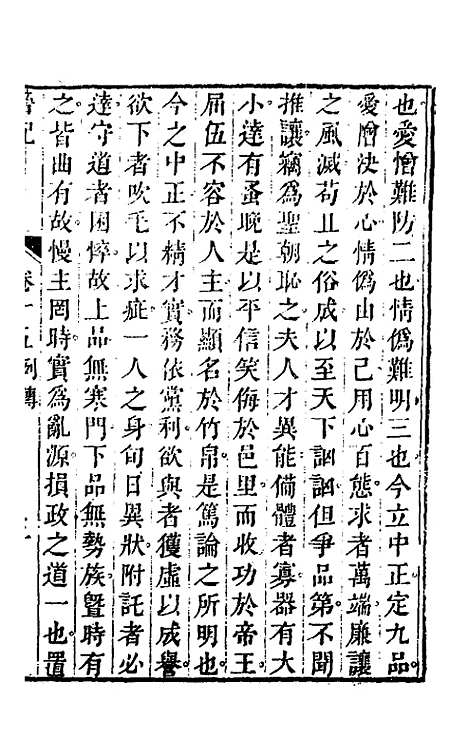 也愛憎難防二也情僞難明三也今立中正定九品
愛憎决於心情僞由於己用心百態求者萬端廉讓
之風滅苟且之俗成以至天下訩訩但爭品第不聞
推讓竊爲聖朝恥之夫人才異能備體者寡器有大
小達有蚤晚是以平信笑侮於邑里而收功於帝王
屈伍不容於人主而顯名於竹帛是篤論之所明也
今之中正不精才實務依黨利欲與者獲虛以成譽
欲下者吹毛以求疵一人之身旬日異狀附託者必
達守道者困悴故上品無寒門下品無勢族曁時有
之皆曲有故慢主罔時實爲亂源損政之道一也置
晉記
卷十五列傳